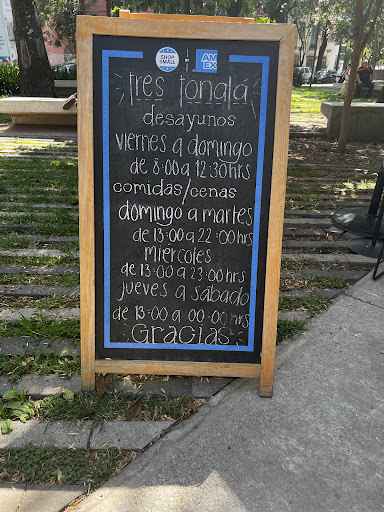 SHOP SMALL
AM EX
tres tonalá
desayunos
viernes a domingo
de 8:00 a 12:30 hrs
comidas/cenas
domingo a martes
de 13:00 a 22:00 hrs
miércoles
de 13:00 a 23:00 hrs
jueves a sábado
de 13:00 a 00:00 hrs
Gracias